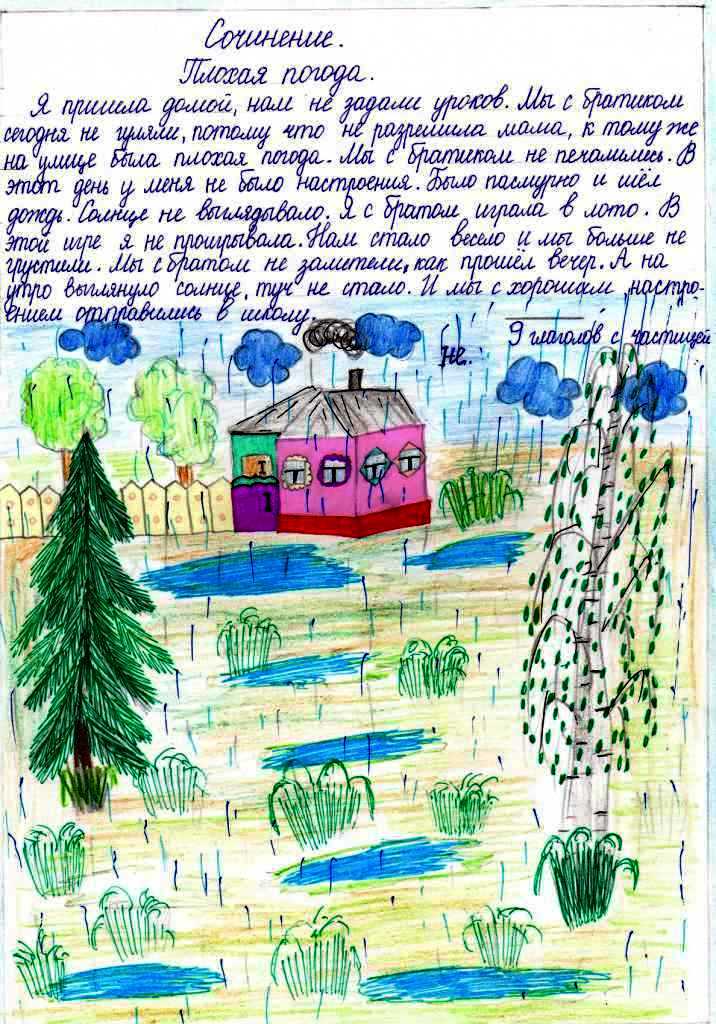 Сочинение.
Плохая погода.
Я пришла домой, нам не задали уроков. Мы с братиком
сегодня не гуляли, потому что не разрешила мама, к тому же
на улице была плохая погода. Мы с братиком не печалились. В
этот день у меня не было настроения. Было пасмурно и шёл
дождь. Солнце не выглядывало. Я с братом играла в лото. В
этой игре я не проигрывала. Нам стало весело и мы больше не
грустили. Мы с братом не заметели, как прошёл вечер. А на
утро выглянуло солнце, туч не стало. И мы с хорошим настро-
ением отправились в школу.
9 глаголов с частицей
не.